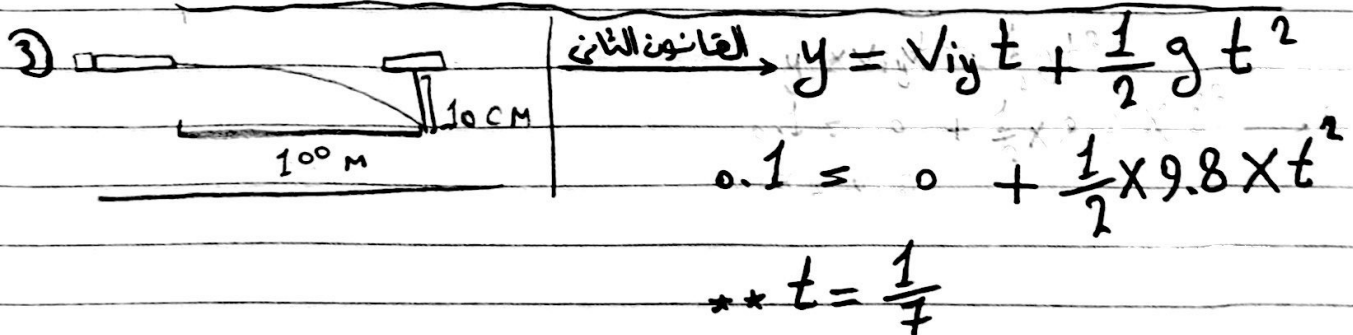 ③
10 CM
100 M
القانون الثاني
y = Viy t + 1/2 g t²
0.1 = 0 + 1/2 × 9.8 × t²
** t = 1/7